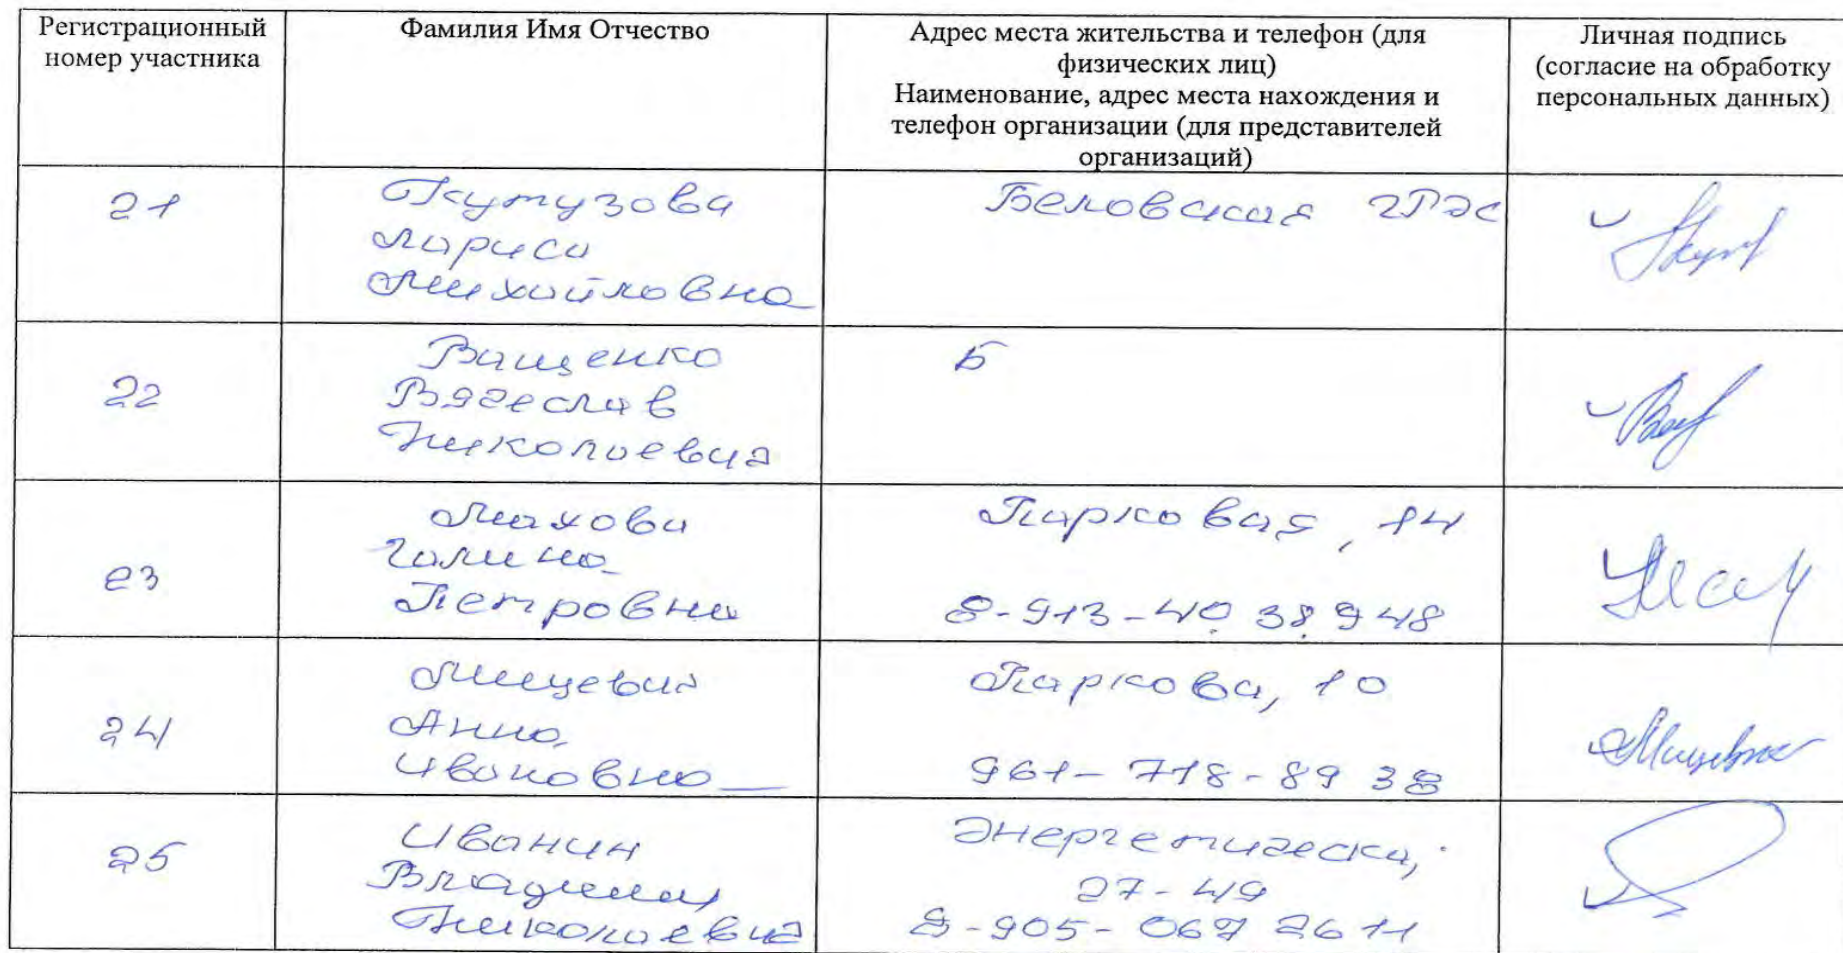 Регистрационный
номер участника
Фамилия Имя Отчество
Адрес места жительства и телефон (для
физических лиц)
Наименование, адрес места нахождения и
телефон организации (для представителей
организаций)
Личная подпись
(согласие на обработку
персональных данных)
21
Кутузова
Лариса
Михайловна
Беловская ГРЭС
22
Ващенко
Вячеслав
Николаевич
Б
23
Махова
Галина
Петровна
Парковая, 14
8-913-40 38 948
24
Мицевич
Анна
Ивановна
Паркова, 10
961-718-89 38
25
Иванин
Владимир
Николаевич
Энергетическа,
27-49
8-905-067 2611